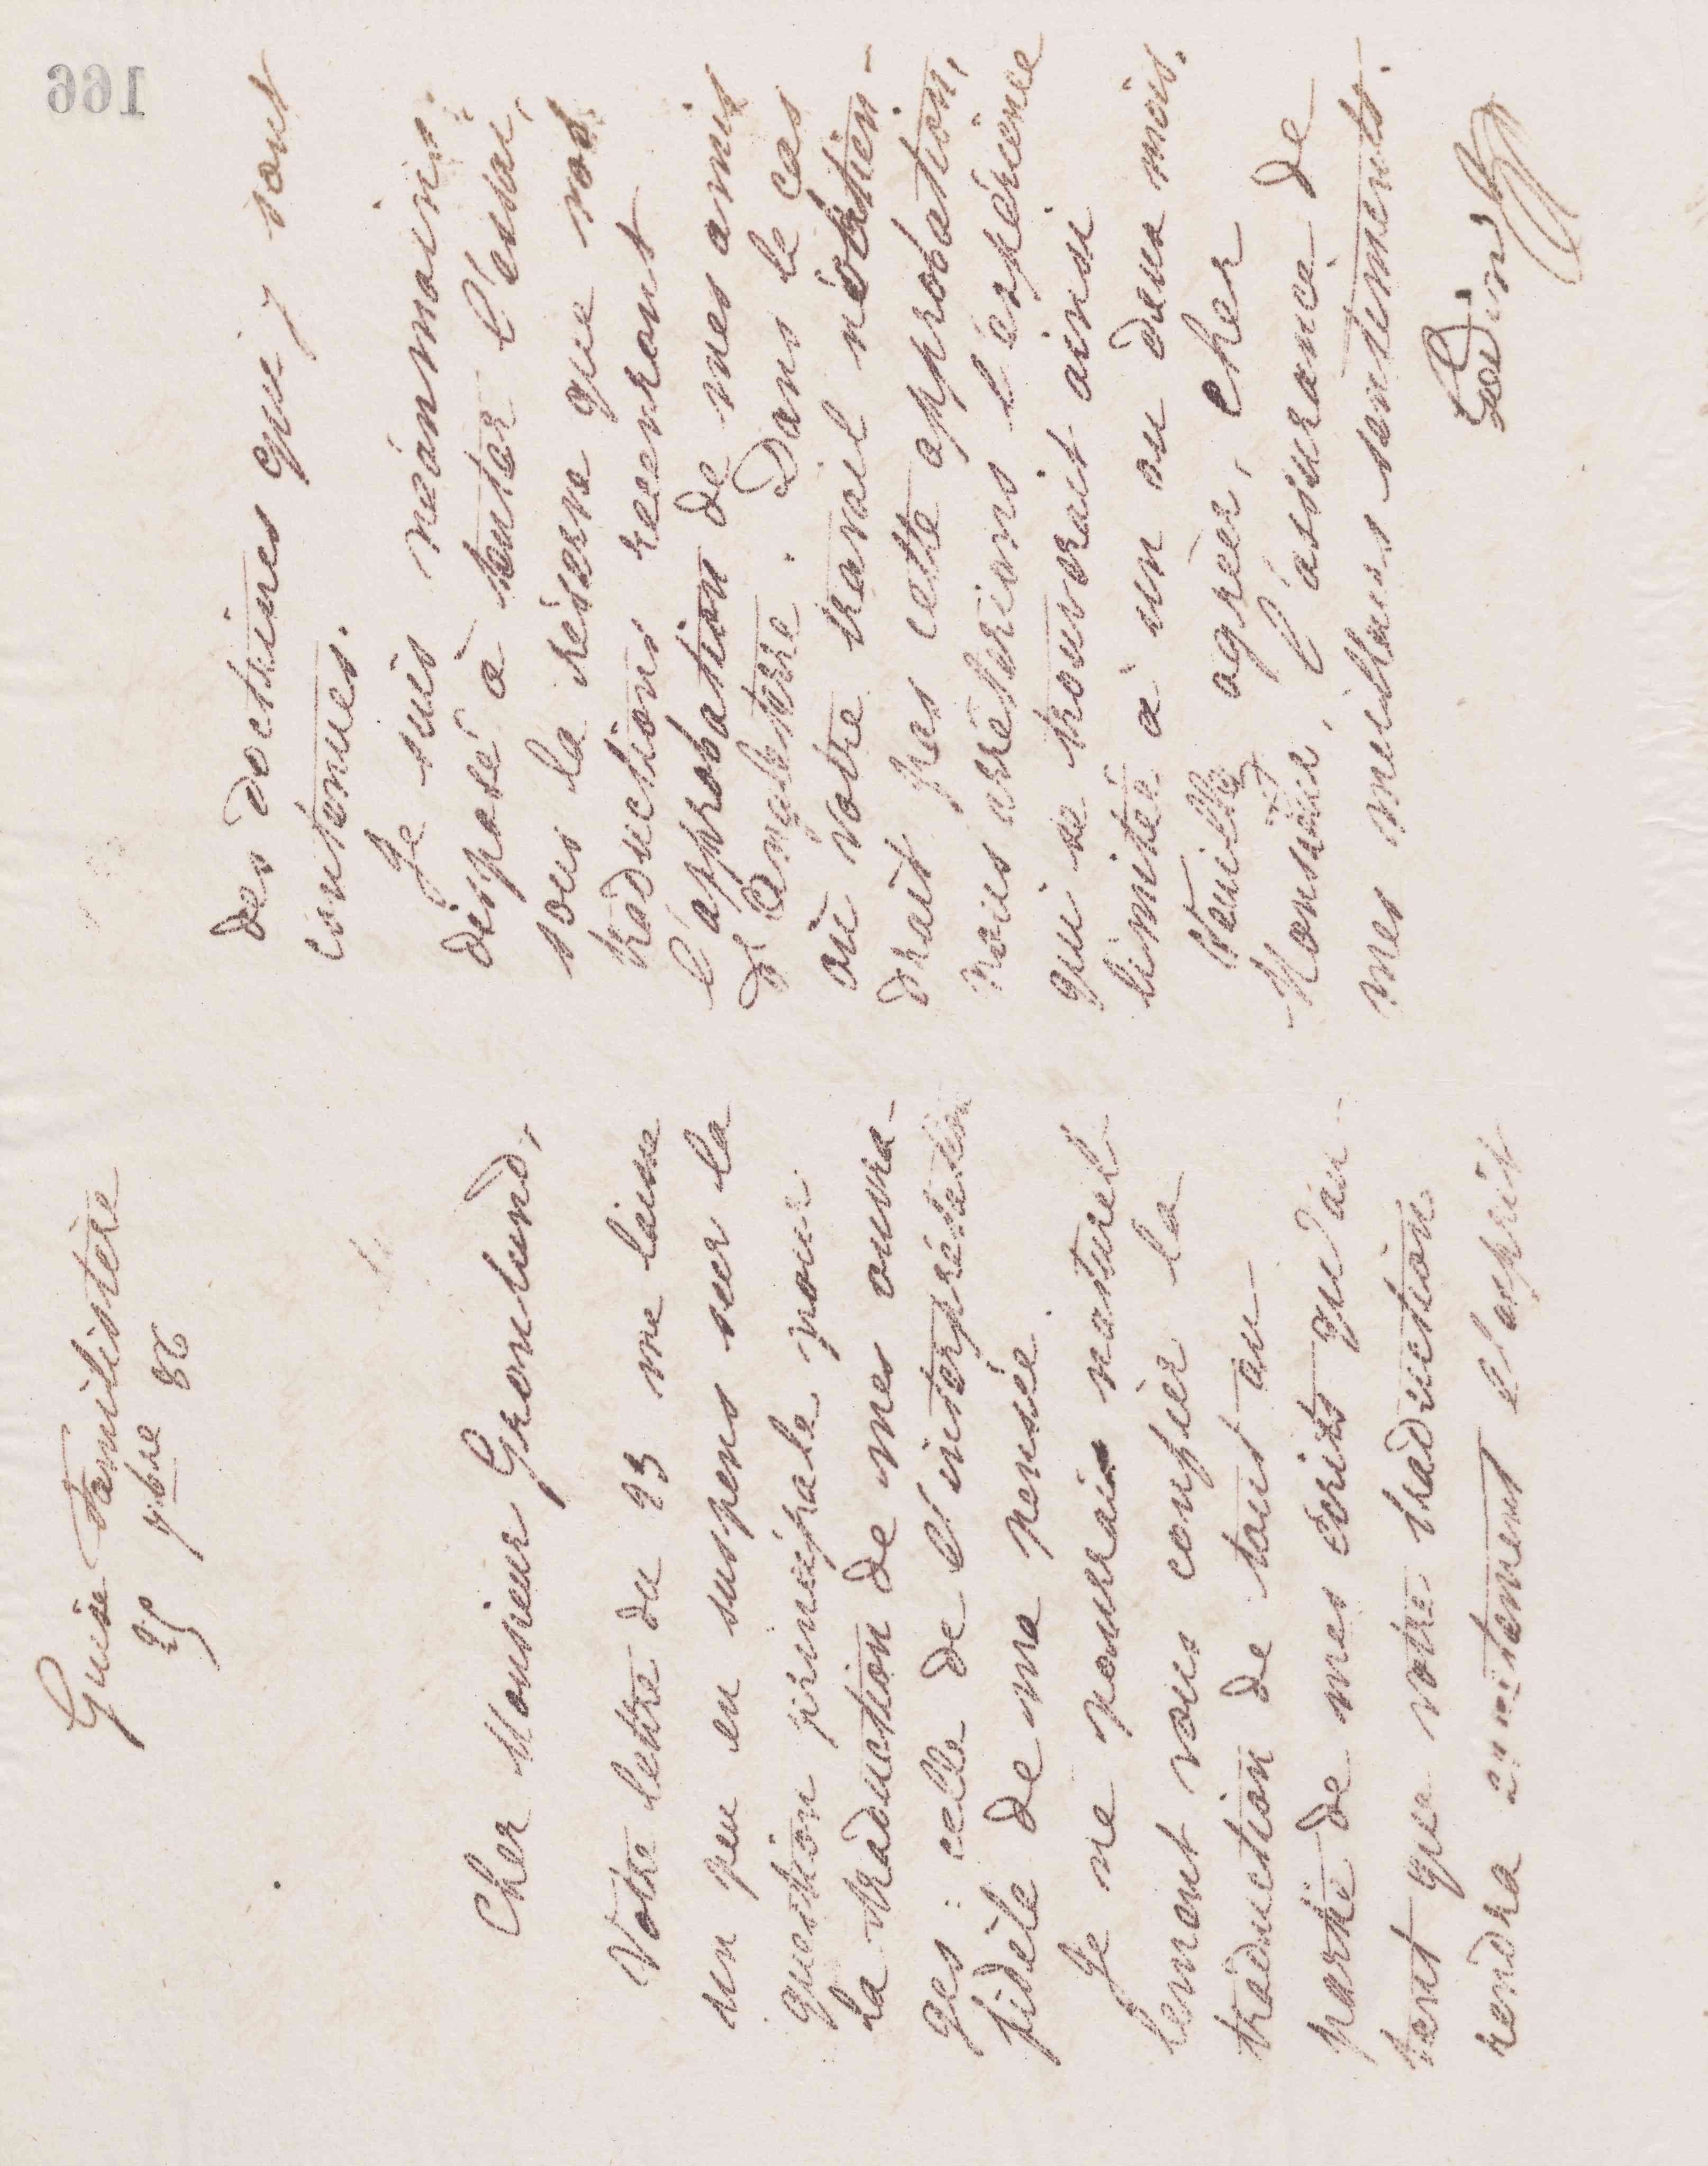 Guise Familistère
25 7bre 86
Cher Monsieur Gronlund,
Votre lettre du 23 me laisse
un peu en suspens sur la
question principale pour
la traduction de mes ouvra-
ges : celle de l'interprétation
fidèle de ma pensée.
Je ne pourrais naturel
lement vous confier la
traduction de tout au-
partie de mes écrits qu'au-
tant que votre traduction
rendra exactement l'esprit
des doctrines qui y sont
contenues.
Je suis néanmoins
disposé à tenter l'essai,
sous la réserve que vos
traductions recevront
l'approbation de mes amis
d'Angleterre. Dans le cas
où votre travail n'obtien-
drait pas cette approbation,
nous arrêterions l'expérience
qui se trouverait ainsi
limitée à un ou deux mois.
Veuillez agréer, cher
Monsieur, l'assurance de
mes meilleurs sentiments.
Godin
166